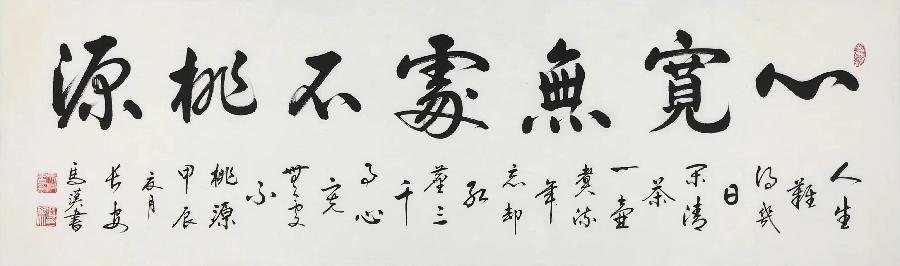 心寬無處不桃源
人生
難
得幾
日
閑清
茶
一壺
煮流
年
忘卻
紅
塵三
千
事心
寬
無處
不
桃源
甲辰
夏月
長安
馬漢書